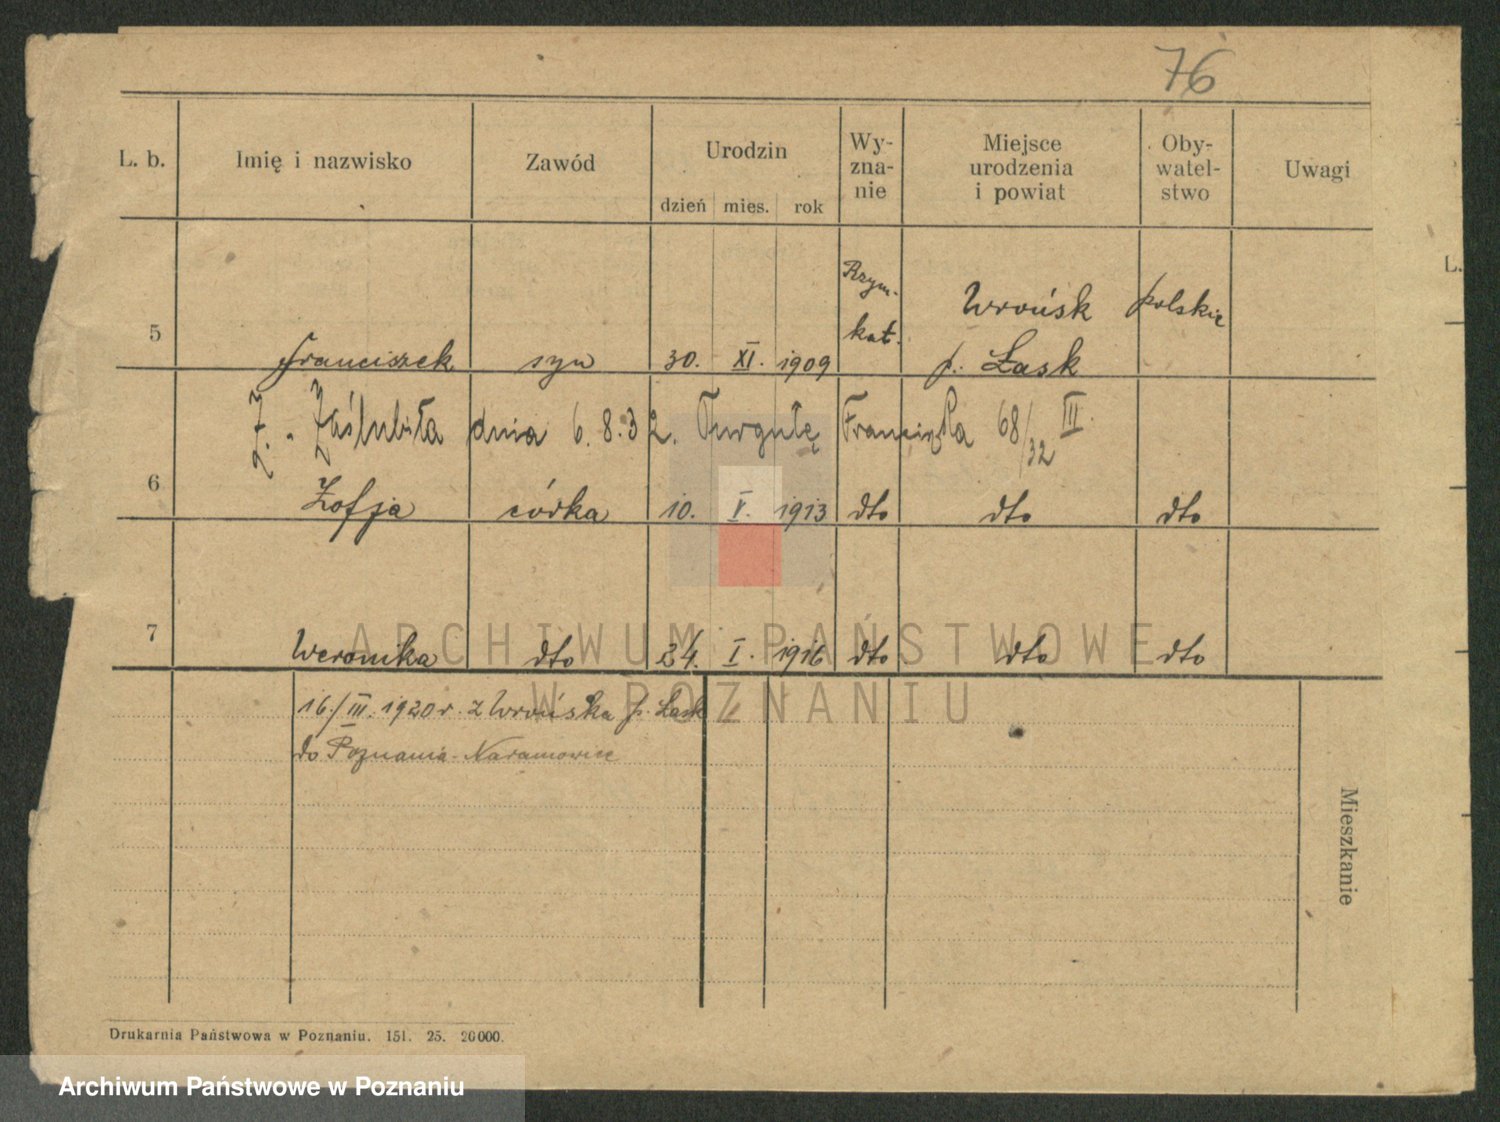 76
L. b. Imię i nazwisko Zawód Urodzin Wy- zna- nie Miejsce urodzenia i powiat Oby- watel- stwo Uwagi
dzień mies. rok
L.
5 Franciszek syn 30. XI. 1909 Rzym. kat. Wrońsk p. Łask polskie
Zaślubiła dnia 6.8.32. Furgułę Franciszka 68/32 III.
6 Zofja córka 10. V. 1913 dto dto dto
7 Weronika dto 24. I. 1916 dto dto dto
16/III. 1920 r. z Wrońska p. Łask
do Poznania-Naramowice
Mieszkanie
ARCHIWUM PAŃSTWOWE
W POZNANIU
Drukarnia Państwowa w Poznaniu. 151. 25. 20000.
Archiwum Państwowe w Poznaniu